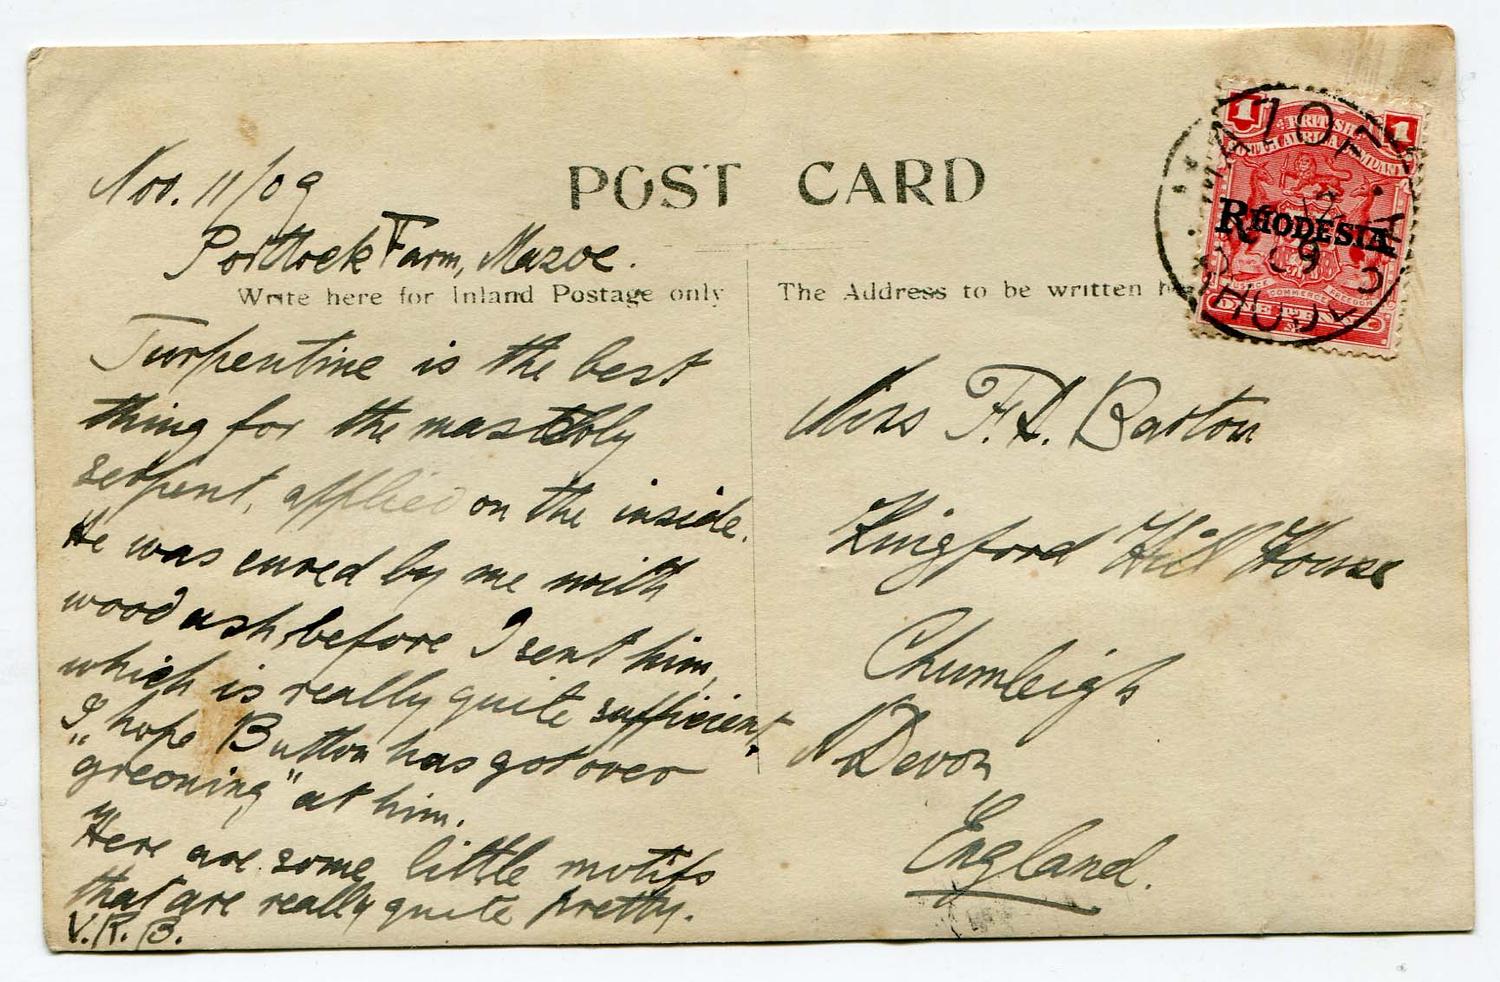 POST CARD
Nov. 11/09
Portlock Farm, Mazoe.
Write here for Inland Postage only
Turpentine is the best
thing for the
serpent, applied on the inside.
He was cured by me with
wood ash, before I sent him,
which is really quite sufficient.
I hope Button has got over
"greoning" at him.
Here are some little motifs
that are really quite pretty.
V.R.B.
The Address to be written
Miss F.D. Barton
Kingford Hill House
Chumleigh
N Devon
England.
1 1
BRITISH
SOUTH AFRICA COMPANY
RHODESIA
JUSTICE COMMERCE FREEDOM
ONE PENNY
MAZOE
12
09